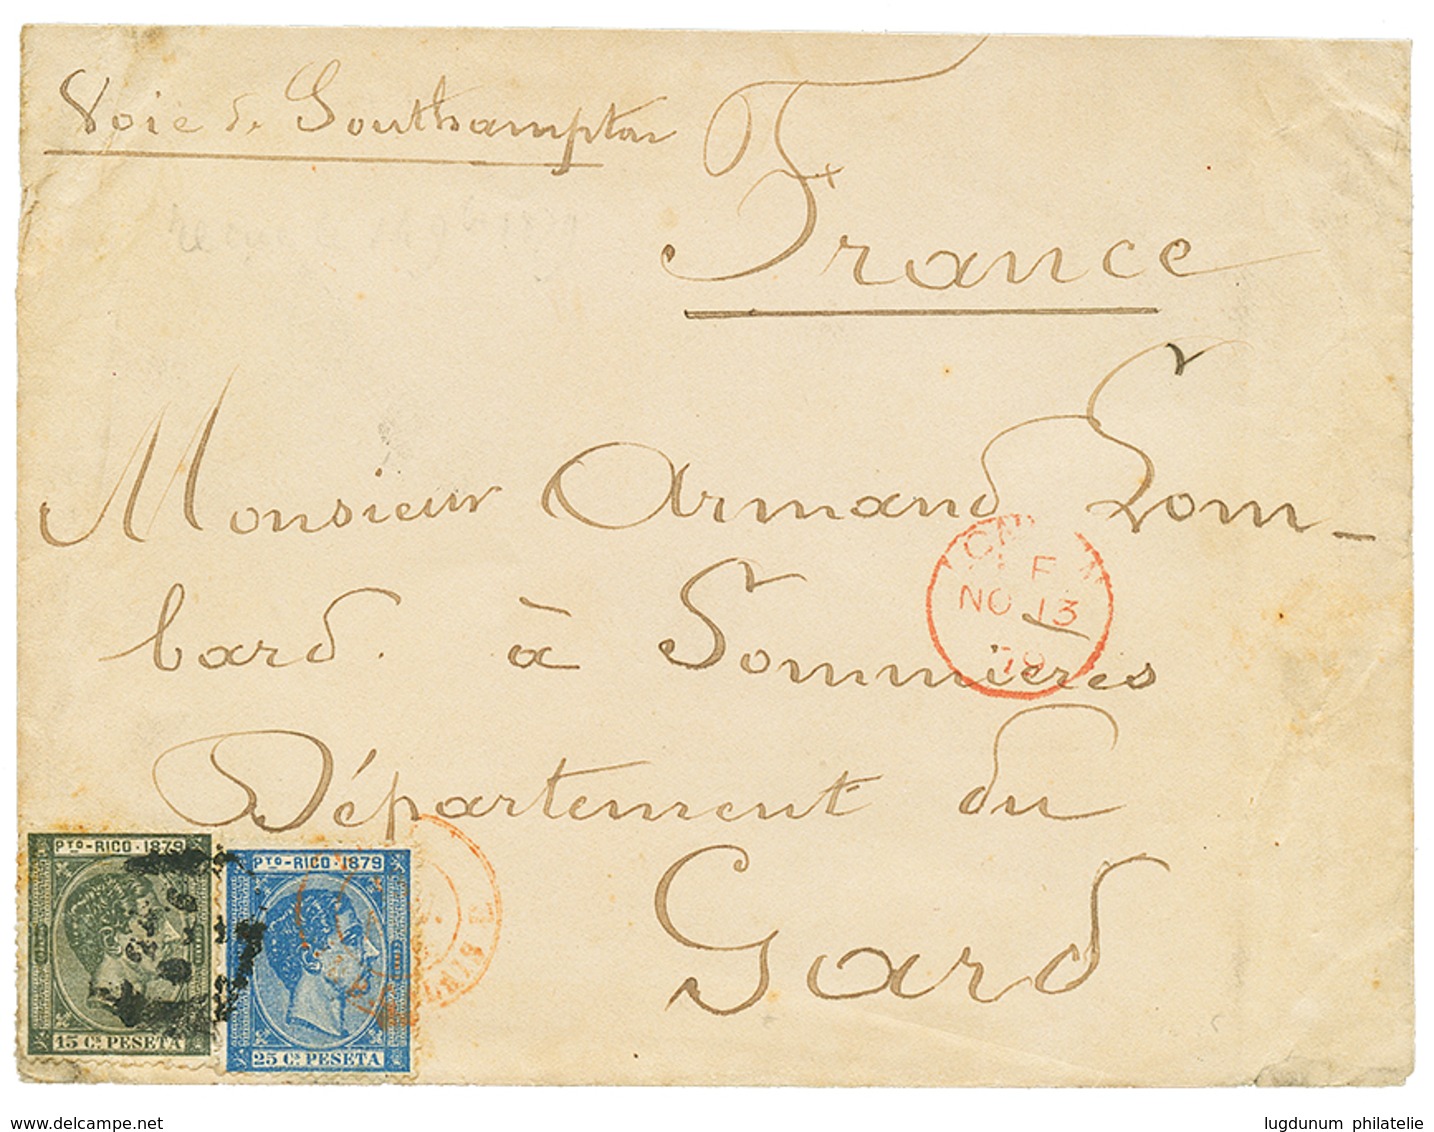 Voie de Southampton
France
Monsieur Armand Lom-
bard. à Sommières
Département du
Gard
NO 13
79
PTO-RICO·1879
15 CS PESETA
PTO-RICO·1879
25 CS PESETA
www.delcampe.net
lugdunum philatelie